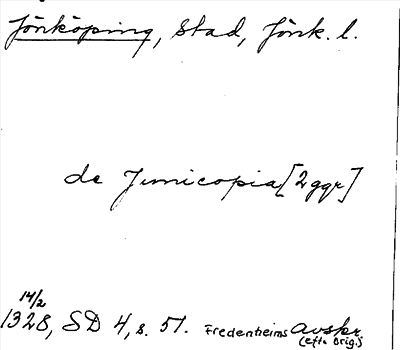 Jönköping, Stad, Jönk. l.
de Junicopia [2 ggr]
14/2
1328, SD 4, s. 51. Fredenheims Avskr.
(efter Orig.)